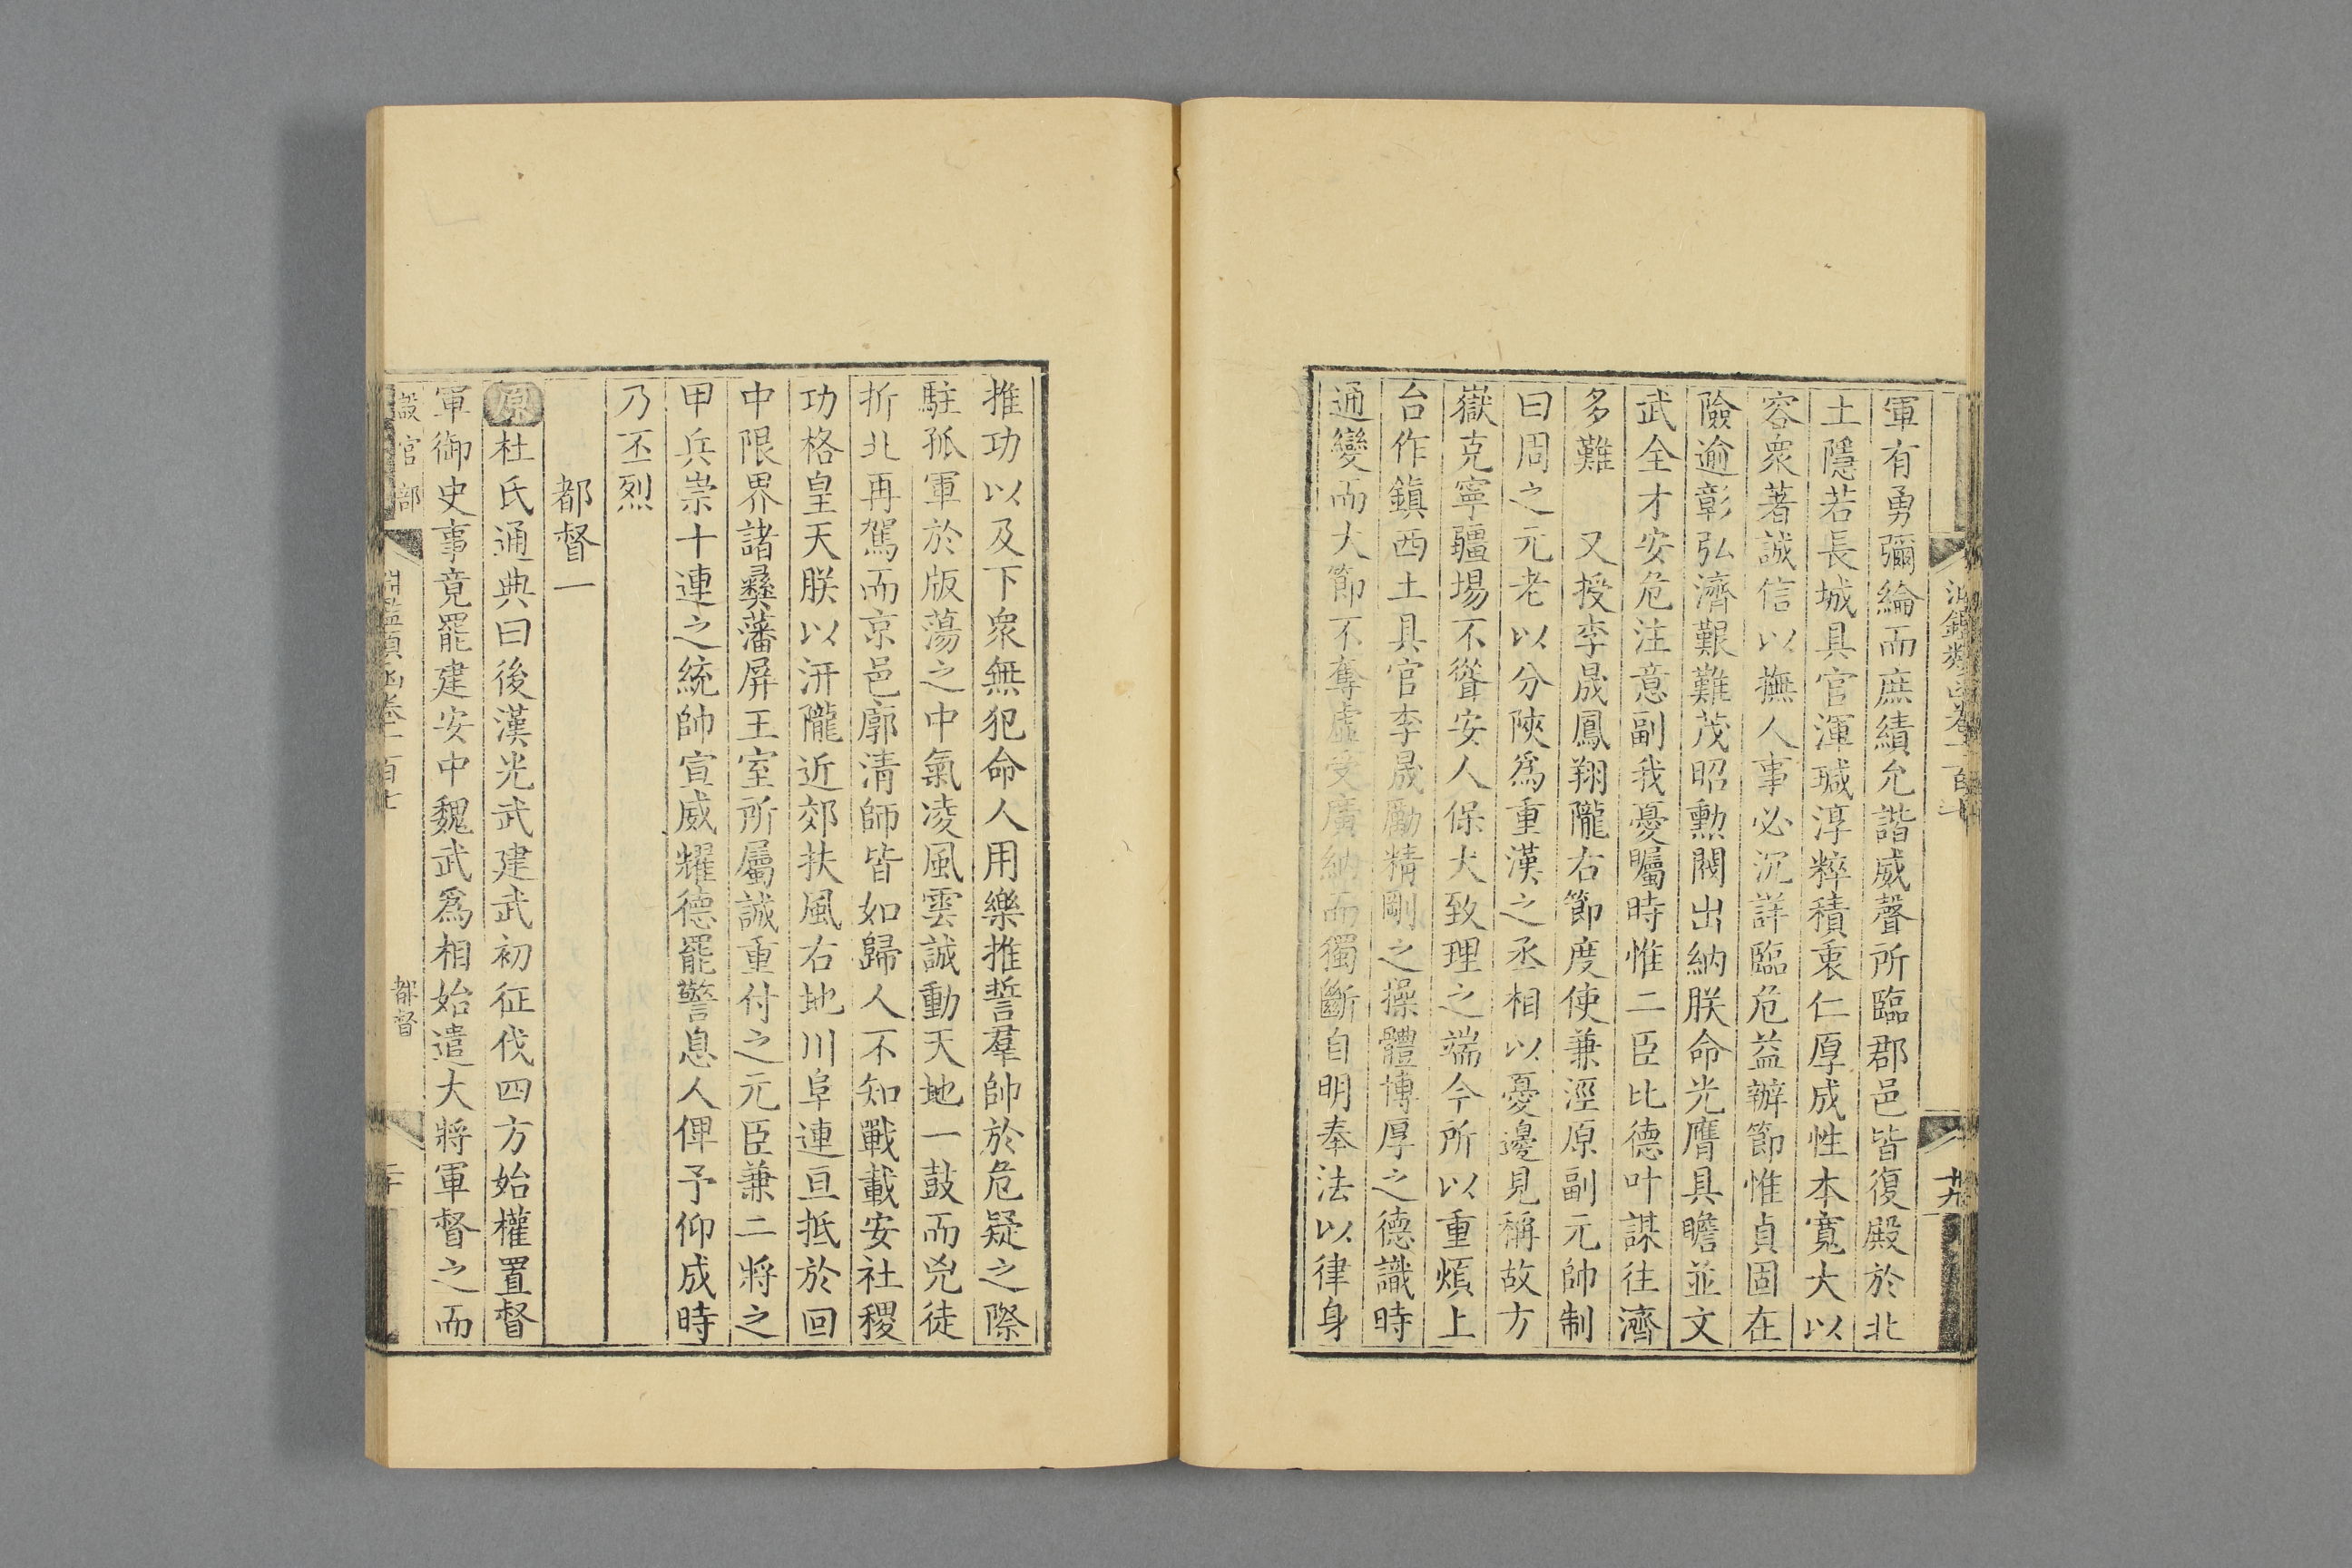 軍有勇彌綸而庶績允諧威聲所臨郡邑皆復殿於北
土隱若長城具官渾瑊淳粹積衷仁厚成性本寬大以
容衆著誠信以撫人事必沉詳臨危益辦節惟貞固在
險逾彰弘濟艱難茂昭勲閥出納朕命光膺具瞻並文
武全才安危注意副我憂矚時惟二臣比德叶謀往濟
多難　又授李晟鳳翔隴右節度使兼涇原副元帥制
曰周之元老以分陜爲重漢之丞相以憂邊見稱故方
嶽克寧疆場不聳安人保大致理之端今所以重煩上
台作鎮西土具官李晟勵精剛之操體博厚之德識時
通變而大節不奪虛受廣納而獨斷自明奉法以律身
推功以及下衆無犯命人用樂推誓羣帥於危疑之際
駐孤軍於版蕩之中氣凌風雲誠動天地一鼓而兇徒
折北再駕而京邑廓清師皆如歸人不知戰載安社稷
功格皇天朕以汧隴近郊扶風右地川阜連亘抵於回
中限界諸彝藩屏王室所屬誠重付之元臣兼二將之
甲兵崇十連之統帥宣威耀德罷警息人俾予仰成時
乃丕烈
都督一
原杜氏通典曰後漢光武建武初征伐四方始權置督
軍御史事竟罷建安中魏武爲相始遣大將軍督之而
設官部
淵鑑類函卷一百十
都督